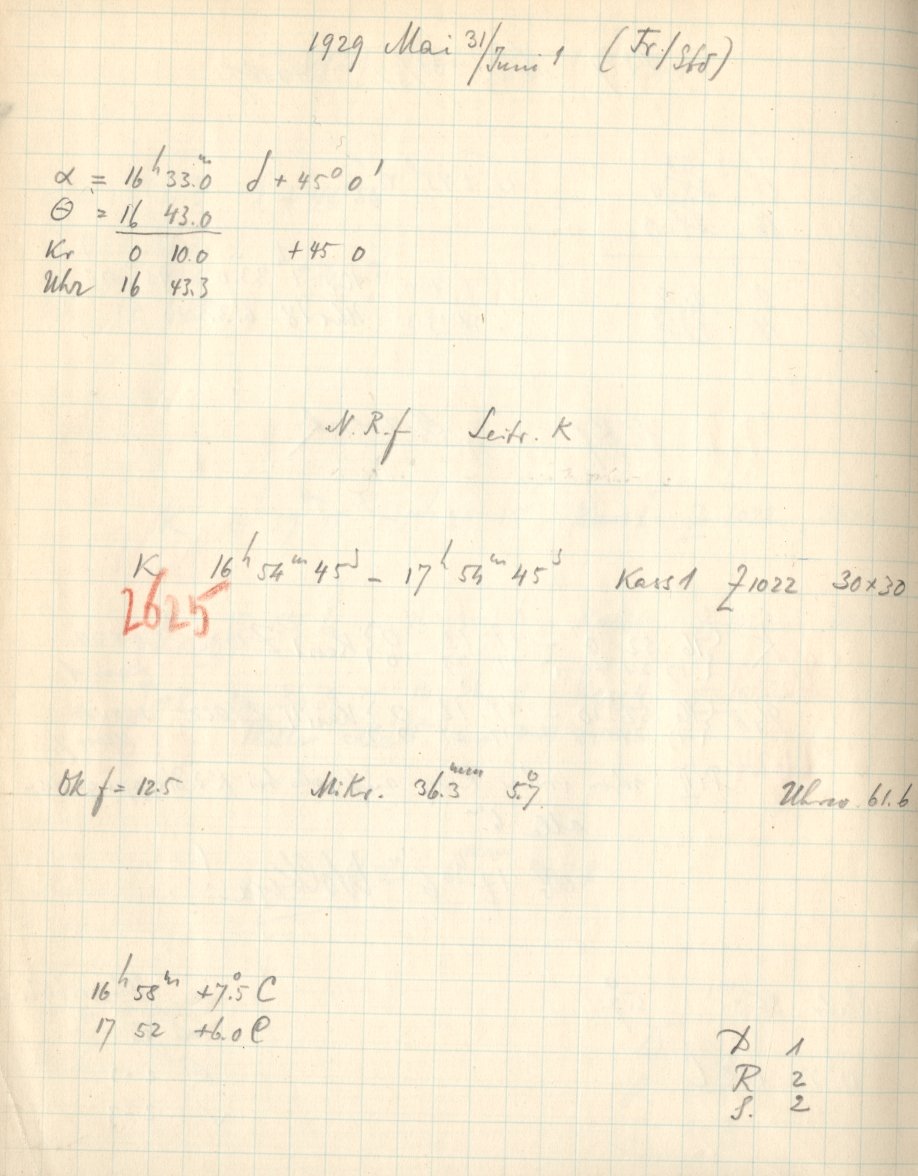 1929 Mai 31/Juni 1 (Fr./Sbd)
α = 16ʰ 33.ᵐ0 δ + 45° 0'
Θ = 16 43.0
Kr 0 10.0 +45 0
Uhr 16 43.3
N.R.f Leitr. K
K 16ʰ 54ᵐ 45ˢ – 17ʰ 54ᵐ 45ˢ Kass 1 Z 1022 30×30
2625
Ok f = 12.5 Mikr. 36.3ᵐᵐ 5.°7 61.6
16ʰ 58ᵐ +7.°5 C
17 52 +6.0 C
D 1
R 2
S. 2